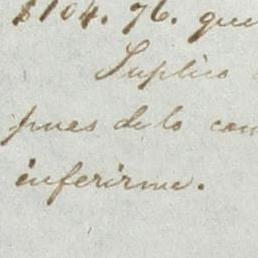 $104.76. que
Suplico
pues de lo con
inferirme.